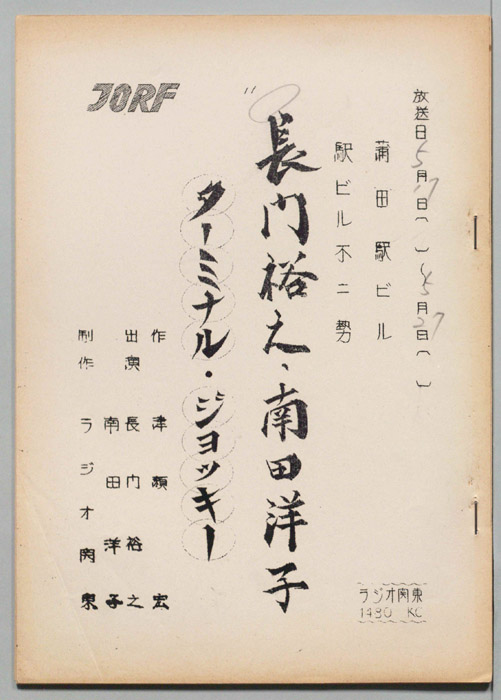 放送日 5月17日( ) 5月27日( )
蒲田駅ビル
駅ビル不二勢
長門裕之、南田洋子
ターミナル・ジョッキー
JORF
作 津瀬宏
出演 長門裕之
南田洋子
制作 ラジオ関東
ラジオ関東
1480 KC